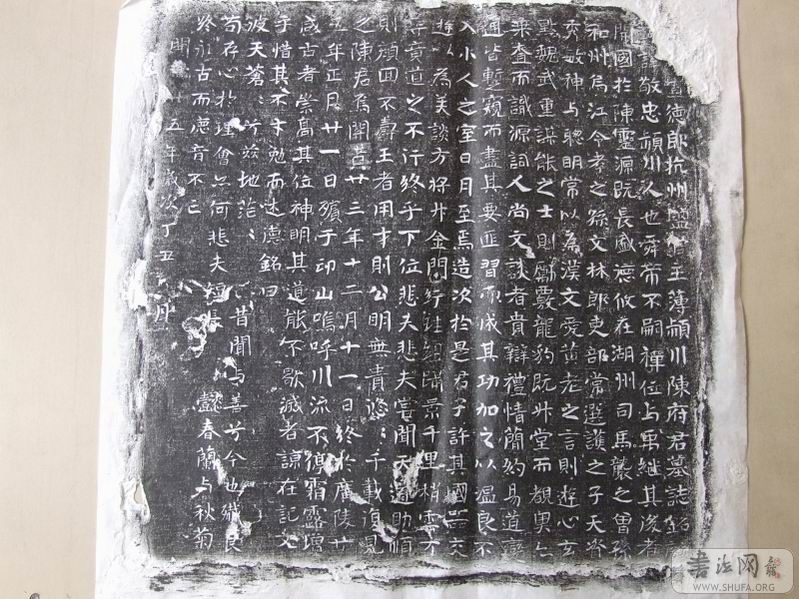 宣德郎杭州鹽官主薄頴川陳府君墓誌銘
敬忠頴川人也舜帝不嗣禪位与禹継其後者
國於陳靈源既長盛德攸在湖州司馬襲之曾孫
和州烏江令孝之孫文林郎吏部常選護之子天脊
秀敏神与聰明常以為漢文愛黄老之言則遊心玄
默魏武重謀能之士則龍豹既升堂而覩奥
乘查而識源詞人尚文談者貴辯禮情簡約易道
通皆蹔窺而盡其要匪習而成其功加之以温良不
入小人之室日月至焉造次於是君子許其國器交
遊以為美談方将升金門景千里梢雲不
貢道之不行終乎下位悲夫悲夫甞聞天道助順
則顔回不壽王者用才則公明無責悠〻千載復見
之陳君焉開廿三年十二月十一日終於廣陵廿
五年正月廿一日殯于邙山嗚呼川流不停霜露增
感古者崇高其位神明其道能不歇滅者諒在記文
乎惜其不才勉而述德銘曰
彼天蒼〻兮茲地茫〻昔聞与善兮今也殲良
苟存心於理會何悲夫短長懿春蘭与秋菊
終古而德音不亡
開五年歲次丁丑月
書法网
WWW.SHUFA.ORG